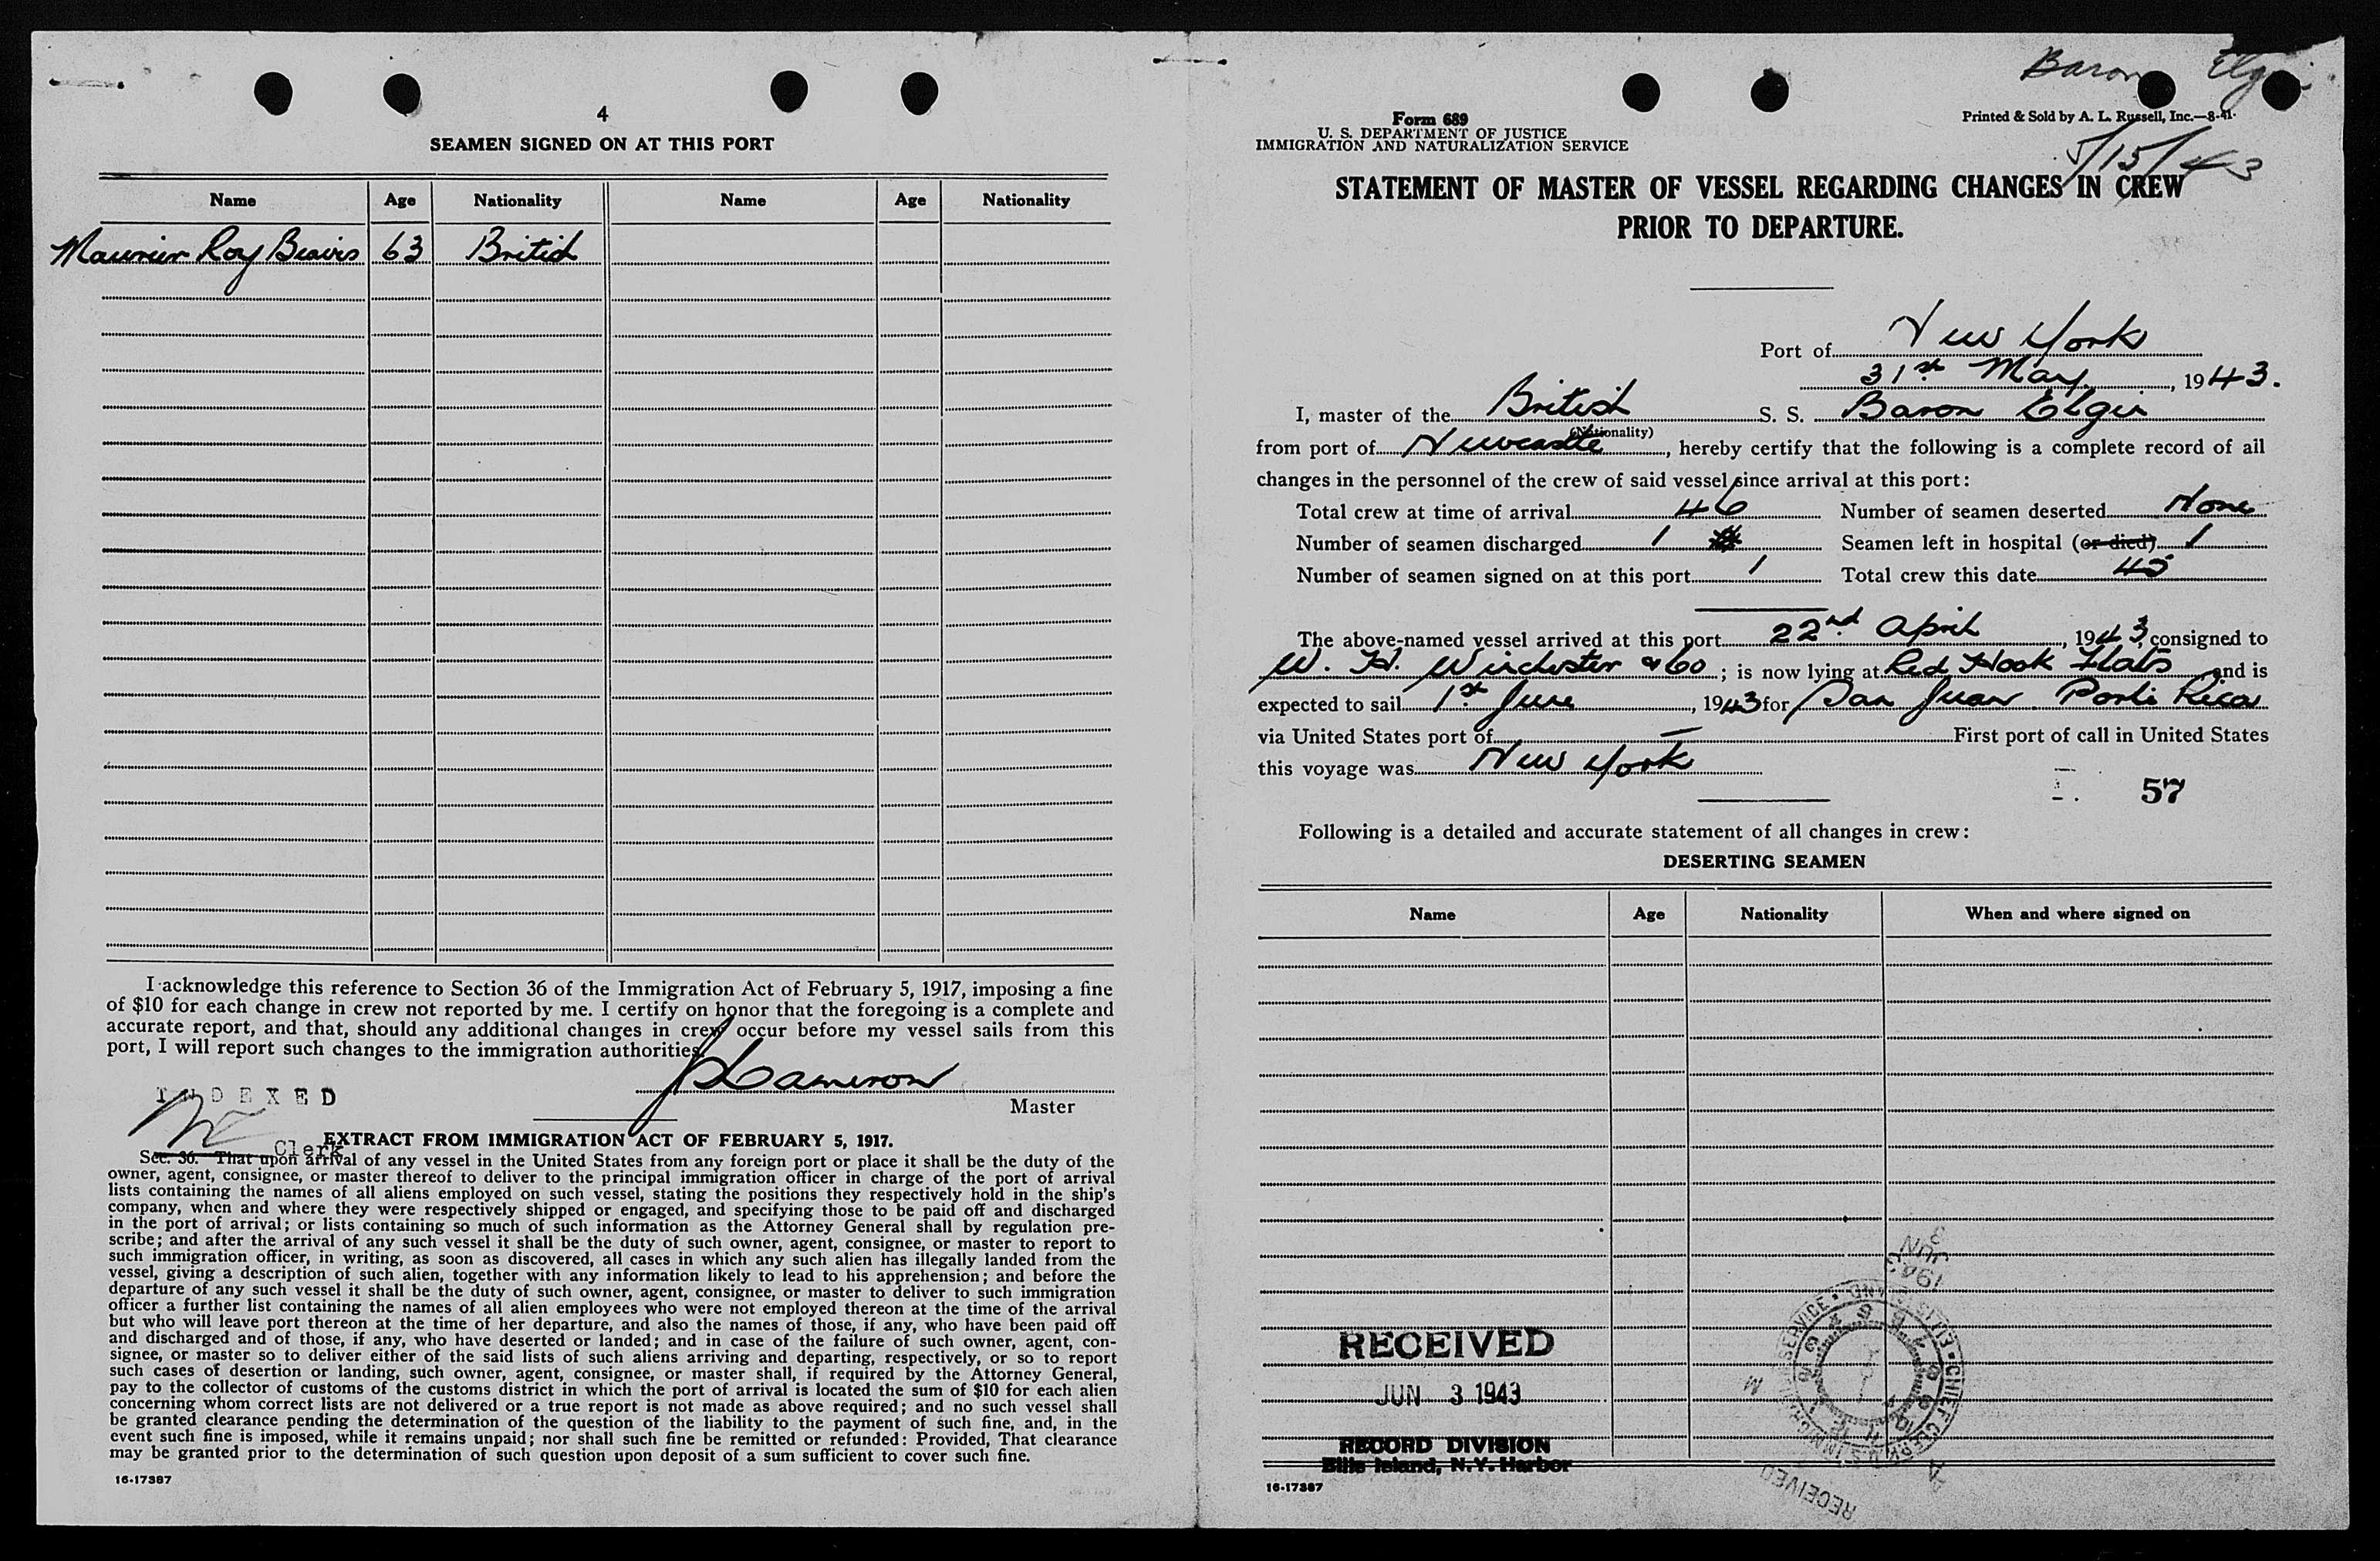 4
SEAMEN SIGNED ON AT THIS PORT
Name Age Nationality Name Age Nationality
Roy 63 British
I acknowledge this reference to Section 36 of the Immigration Act of February 5, 1917, imposing a fine
of $10 for each change in crew not reported by me. I certify on honor that the foregoing is a complete and
accurate report, and that, should any additional changes in crew occur before my vessel sails from this
port, I will report such changes to the immigration authorities.
Cameron
Master
INDEXED
Clerk
EXTRACT FROM IMMIGRATION ACT OF FEBRUARY 5, 1917.
Sec. 36. That upon arrival of any vessel in the United States from any foreign port or place it shall be the duty of the
owner, agent, consignee, or master thereof to deliver to the principal immigration officer in charge of the port of arrival
lists containing the names of all aliens employed on such vessel, stating the positions they respectively hold in the ship's
company, when and where they were respectively shipped or engaged, and specifying those to be paid off and discharged
in the port of arrival; or lists containing so much of such information as the Attorney General shall by regulation pre-
scribe; and after the arrival of any such vessel it shall be the duty of such owner, agent, consignee, or master to report to
such immigration officer, in writing, as soon as discovered, all cases in which any such alien has illegally landed from the
vessel, giving a description of such alien, together with any information likely to lead to his apprehension; and before the
departure of any such vessel it shall be the duty of such owner, agent, consignee, or master to deliver to such immigration
officer a further list containing the names of all alien employees who were not employed thereon at the time of the arrival
but who will leave port thereon at the time of her departure, and also the names of those, if any, who have been paid off
and discharged and of those, if any, who have deserted or landed; and in case of the failure of such owner, agent, con-
signee, or master so to deliver either of the said lists of such aliens arriving and departing, respectively, or so to report
such cases of desertion or landing, such owner, agent, consignee, or master shall, if required by the Attorney General,
pay to the collector of customs of the customs district in which the port of arrival is located the sum of $10 for each alien
concerning whom correct lists are not delivered or a true report is not made as above required; and no such vessel shall
be granted clearance pending the determination of the question of the liability to the payment of such fine, and, in the
event such fine is imposed, while it remains unpaid; nor shall such fine be remitted or refunded: Provided, That clearance
may be granted prior to the determination of such question upon deposit of a sum sufficient to cover such fine.
16-17387
Baron Elgin
Form 689
Printed & Sold by A. L. Russell, Inc.—8-41.
U. S. DEPARTMENT OF JUSTICE
IMMIGRATION AND NATURALIZATION SERVICE
5/15/43
STATEMENT OF MASTER OF VESSEL REGARDING CHANGES IN CREW
PRIOR TO DEPARTURE.
Port of New York
31st May, 1943.
I, master of the British S. S. Baron Elgin
(Nationality)
from port of Newcastle, hereby certify that the following is a complete record of all
changes in the personnel of the crew of said vessel since arrival at this port:
Total crew at time of arrival 46 Number of seamen deserted None
Number of seamen discharged 1 Seamen left in hospital (or died) 1
Number of seamen signed on at this port 1 Total crew this date 45
The above-named vessel arrived at this port 22nd April, 1943, consigned to
W. H. Winchester & Co; is now lying at Red Hook Flats and is
expected to sail 1st June, 1943 for San Juan. Porto Rico
via United States port of — First port of call in United States
this voyage was New York
57
Following is a detailed and accurate statement of all changes in crew:
DESERTING SEAMEN
Name Age Nationality When and where signed on
JUN 3
1943
RECEIVED
JUN 3 1943
RECORD DIVISION
Ellis Island, N.Y. Harbor
CHIEF CLERK ELLIS ISLAND IMMIGRATION SERVICE
RECEIVED
16-17387